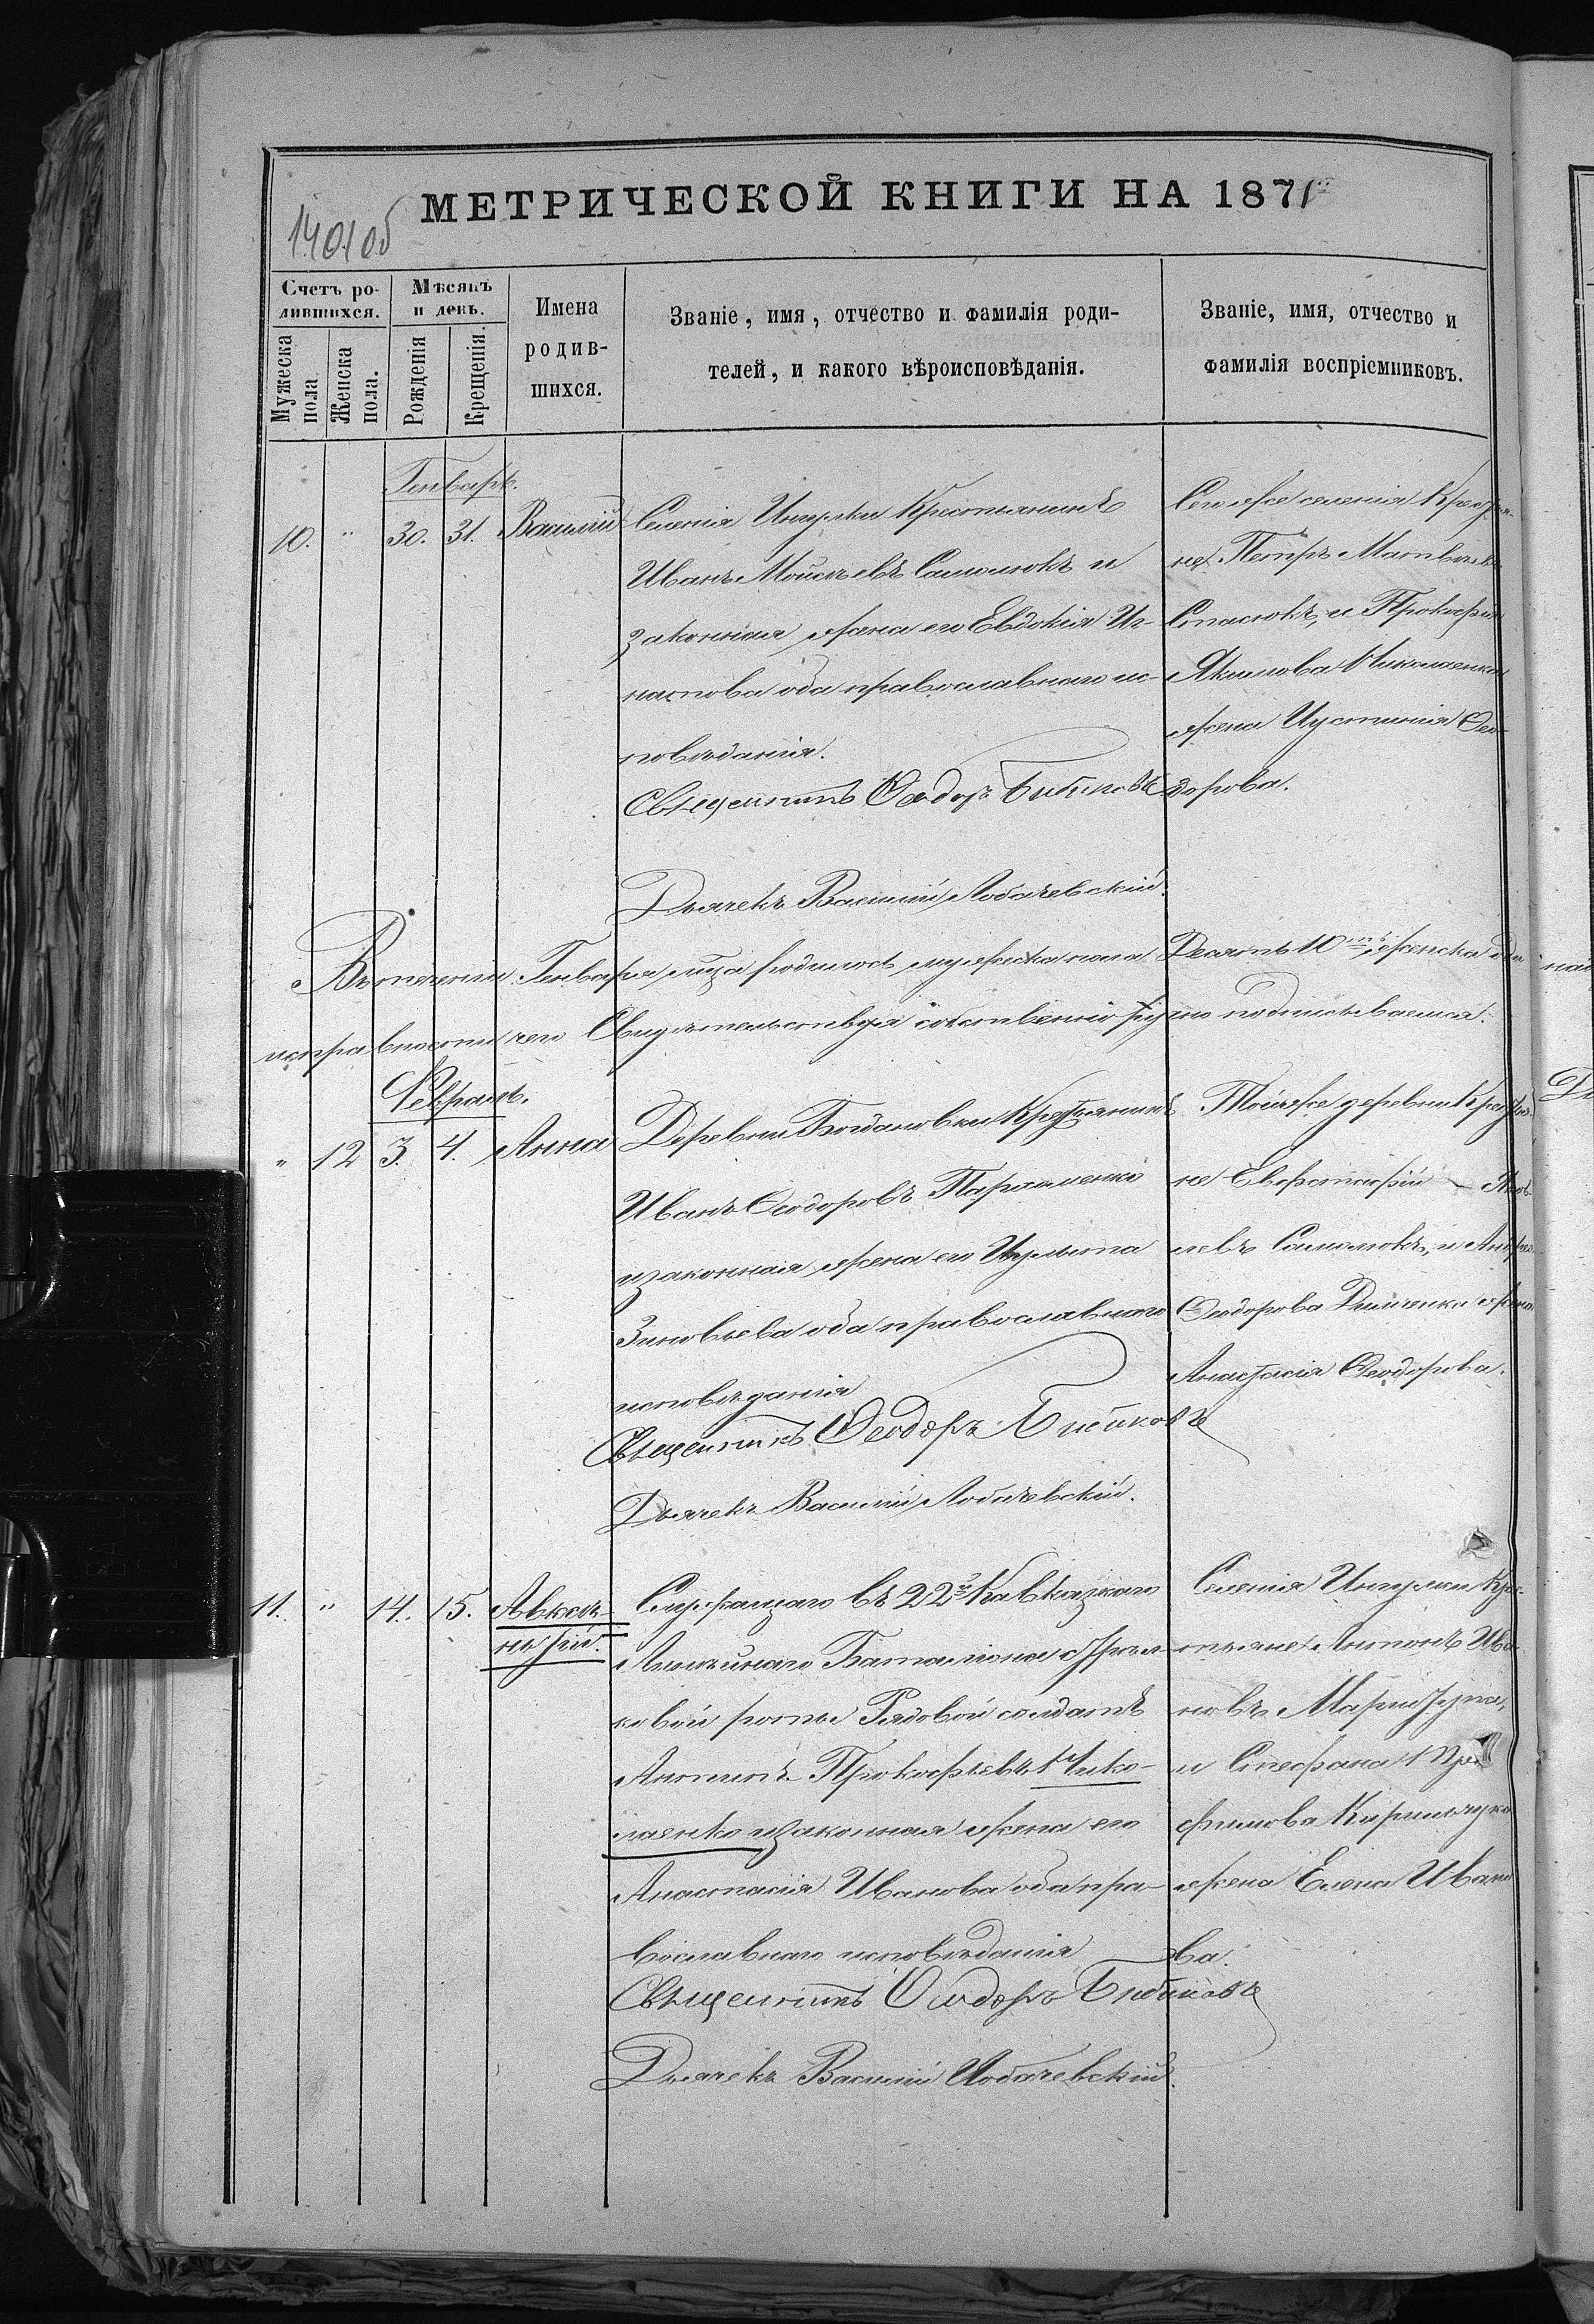 МЕТРИЧЕСКОЙ КНИГИ НА 1871
140106
Счетъ ро-
дившихся.
Мужеска
пола
Женска
пола.
Мѣсяцъ
и день.
Рожденія
Крещенія.
Имена
родив-
шихся.
Званіе, имя, отчество и фамилія роди-
телей, и какого вѣроисповѣданія.
Званіе, имя, отчество и
фамилія воспріемниковъ.
Генварь.
10. " 30. 31. Василій
Селенія Ингулки Крестьянинъ
Иванъ Моисѣевъ Самолюкъ и
законная жена его Евдокія Иг-
натова оба православнаго ис-
повѣданія.
Священникъ Феодоръ Бибиковъ
Дьячекъ Василій Лобачевскій.
Того же селенія Крестья-
не Петръ Матвѣевъ
Спасюкъ, и Прокофія
Якимова Николаенка
жена Иустинія Фео-
дорова.
Въ теченіи Генваря м-ца родилось мужеска пола Десять 10ть женска
исправности чего Свидѣтельствуя собственно ручно подписываемся:
Февраль.
" 12 3. 4. Анна
Деревни Богдановки Крестьянинъ
Иванъ Феодоровъ Пархоменко
и законная жена его Иулита
Зиновьева оба православнаго
исповѣданія
Священникъ Феодоръ Бибиковъ
Дьячекъ Василій Лобачевскій.
Той же деревни Крестья-
не Евфстафій Яков-
левъ Самолюкъ, и
Феодорова Димченка жена
Анастасія Феодорова.
11. " 14. 15. Авксен-
тій.
Служащаго въ 22й Кавказкаго
Линейнаго Баталіона Стрѣл-
ковой роты Рядовой солдатъ
Антонъ Прокофьевъ Нико-
лаенко и законная жена его
Анастасія Иванова оба пра-
вославнаго исповѣданія
Священникъ Феодоръ Бибиковъ
Дьячекъ Василій Лобачевскій.
Селенія Ингулки Кре-
стьяне Антонъ Ива-
новъ
и Стефана
фимова Кирильчука
жена Елена Ивано
ва.